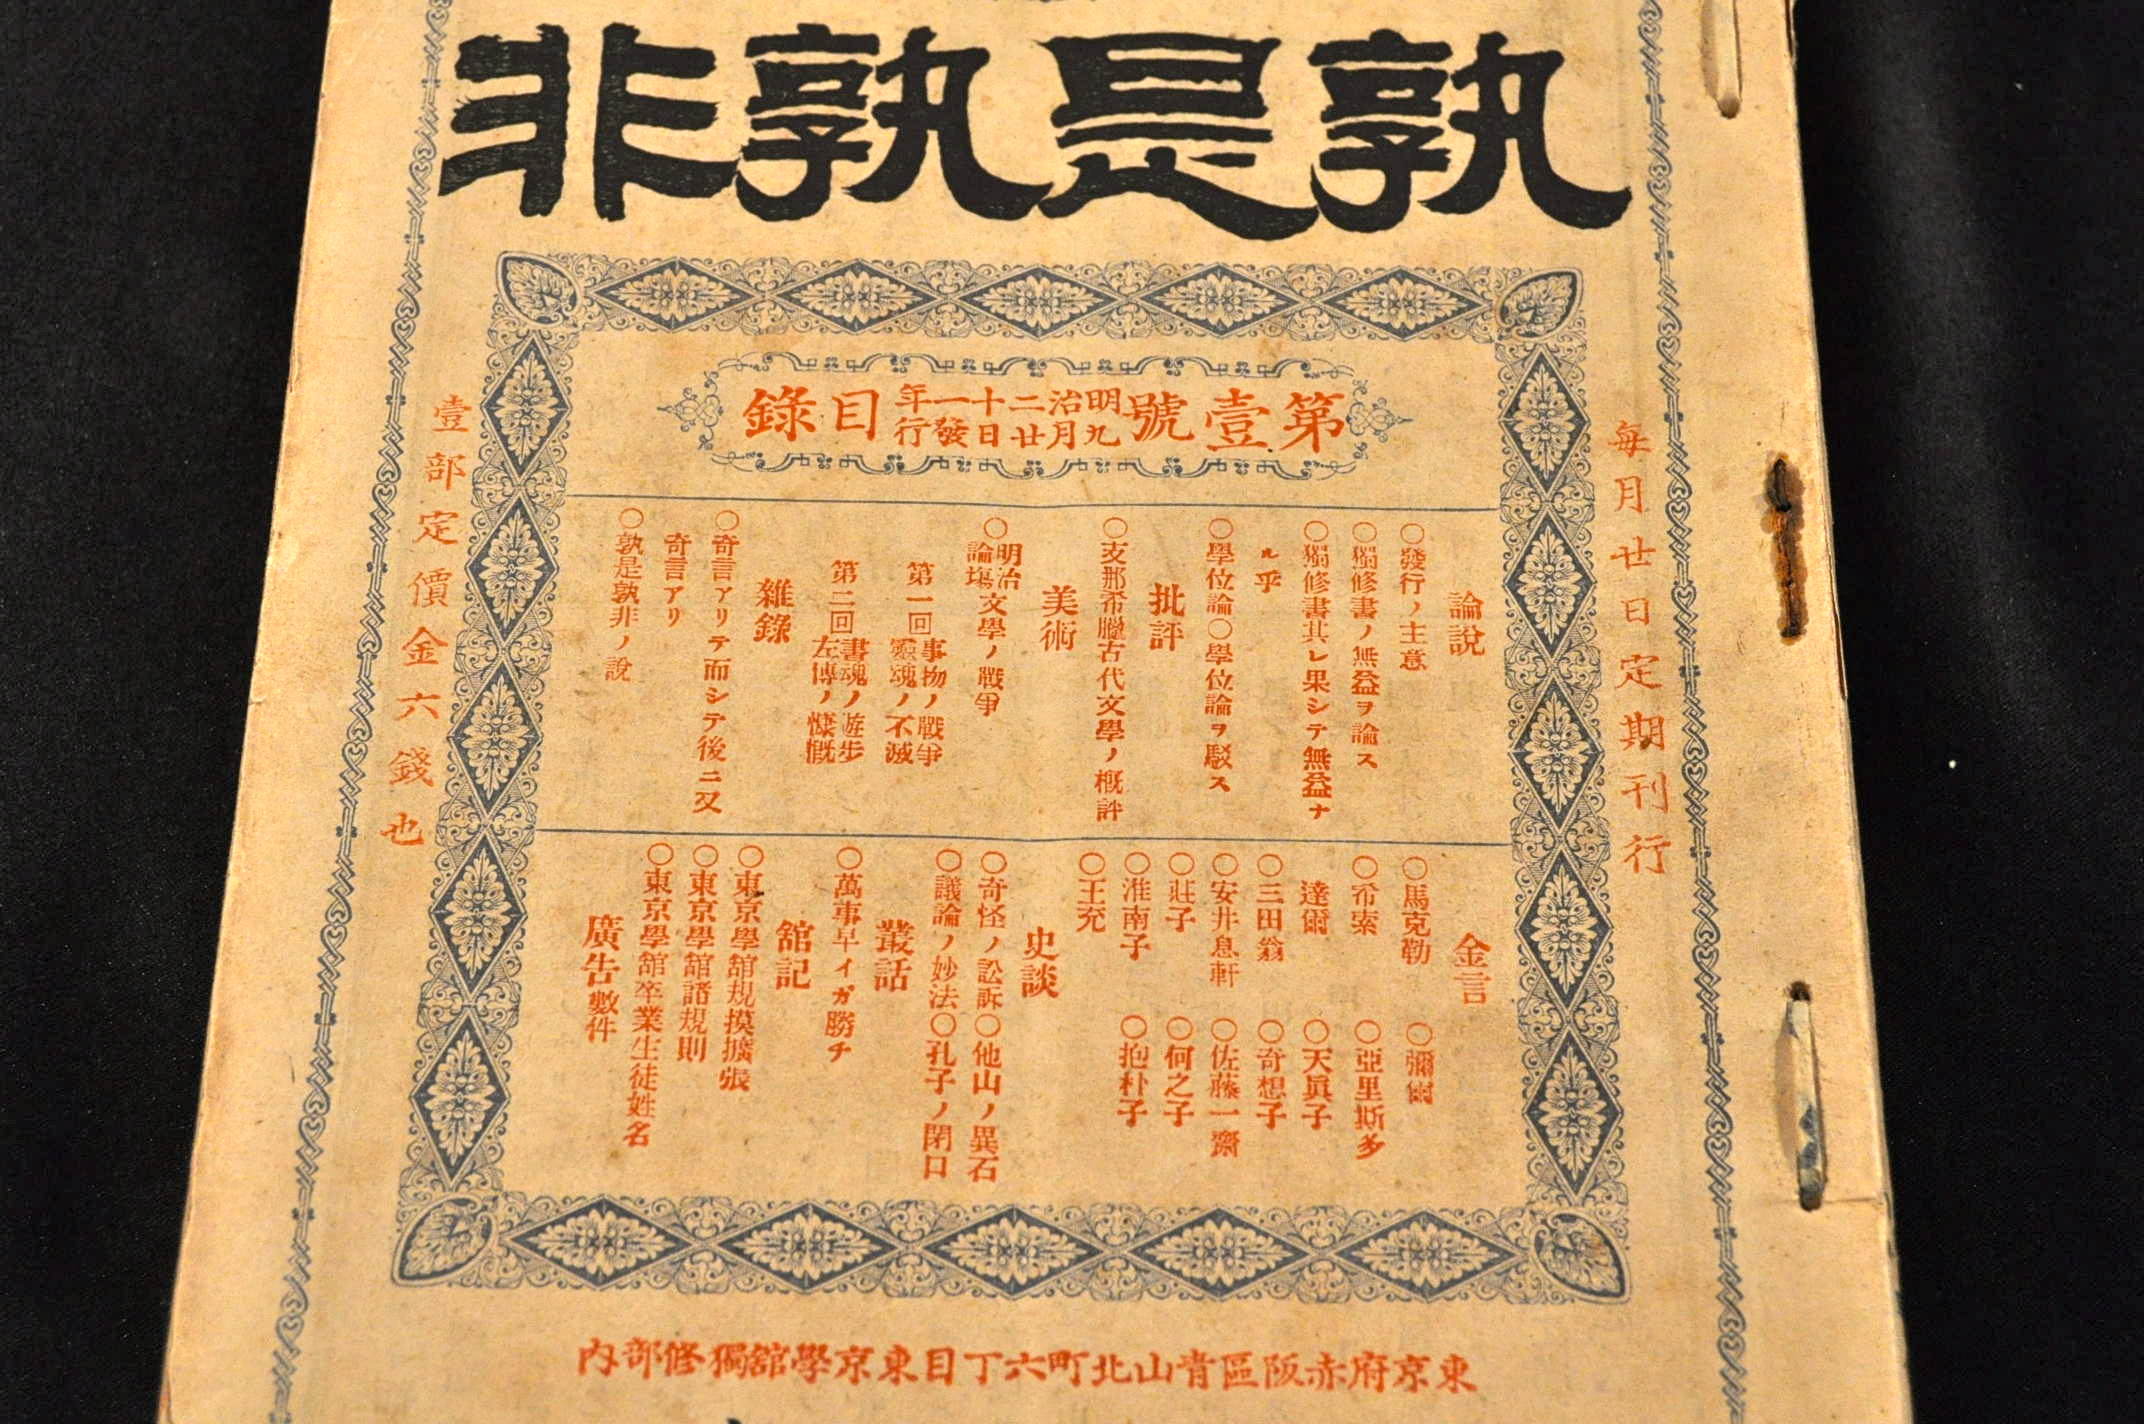 孰是孰非
毎月廿日定期刊行
第壹號 明治二十一年九月廿日發行 目錄
論說
○發行ノ主意
○獨修書ノ無益ヲ論ス
○獨修書其レ果シテ無益ナ
ル乎
○學位論○學位論ヲ駁ス
批評
○支那希臘古代文學ノ概評
美術
○明治論塲文學ノ戰爭
第一回 事物ノ戰爭 靈魂ノ不滅
第二回 書魂ノ遊步 左傳ノ慷慨
雜錄
○奇言アリテ而シテ後ニ又
奇言アリ
○孰是孰非ノ說
金言
○馬克勒 ○彌爾
○希索 ○亞里斯多
達爾 ○天眞子
○三田翁 ○奇想子
○安井息軒 ○佐藤一齋
○莊子 ○何之子
○淮南子 ○抱朴子
○王充
史談
○奇怪ノ訟訴○他山ノ異石
○議論ノ妙法○孔子ノ閉口
叢話
○萬事早イガ勝チ
舘記
○東京學舘規摸擴張
○東京學舘諸規則
○東京學舘卒業生徒姓名
廣告數件
壹部定價金六錢也
東京府赤阪區青山北町六丁目東京學舘獨修部內